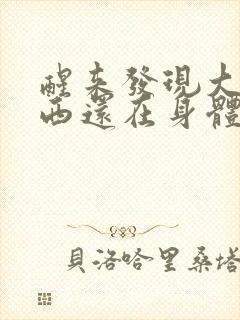 醒來發現大
西還在身體
貝洛哈里桑塔